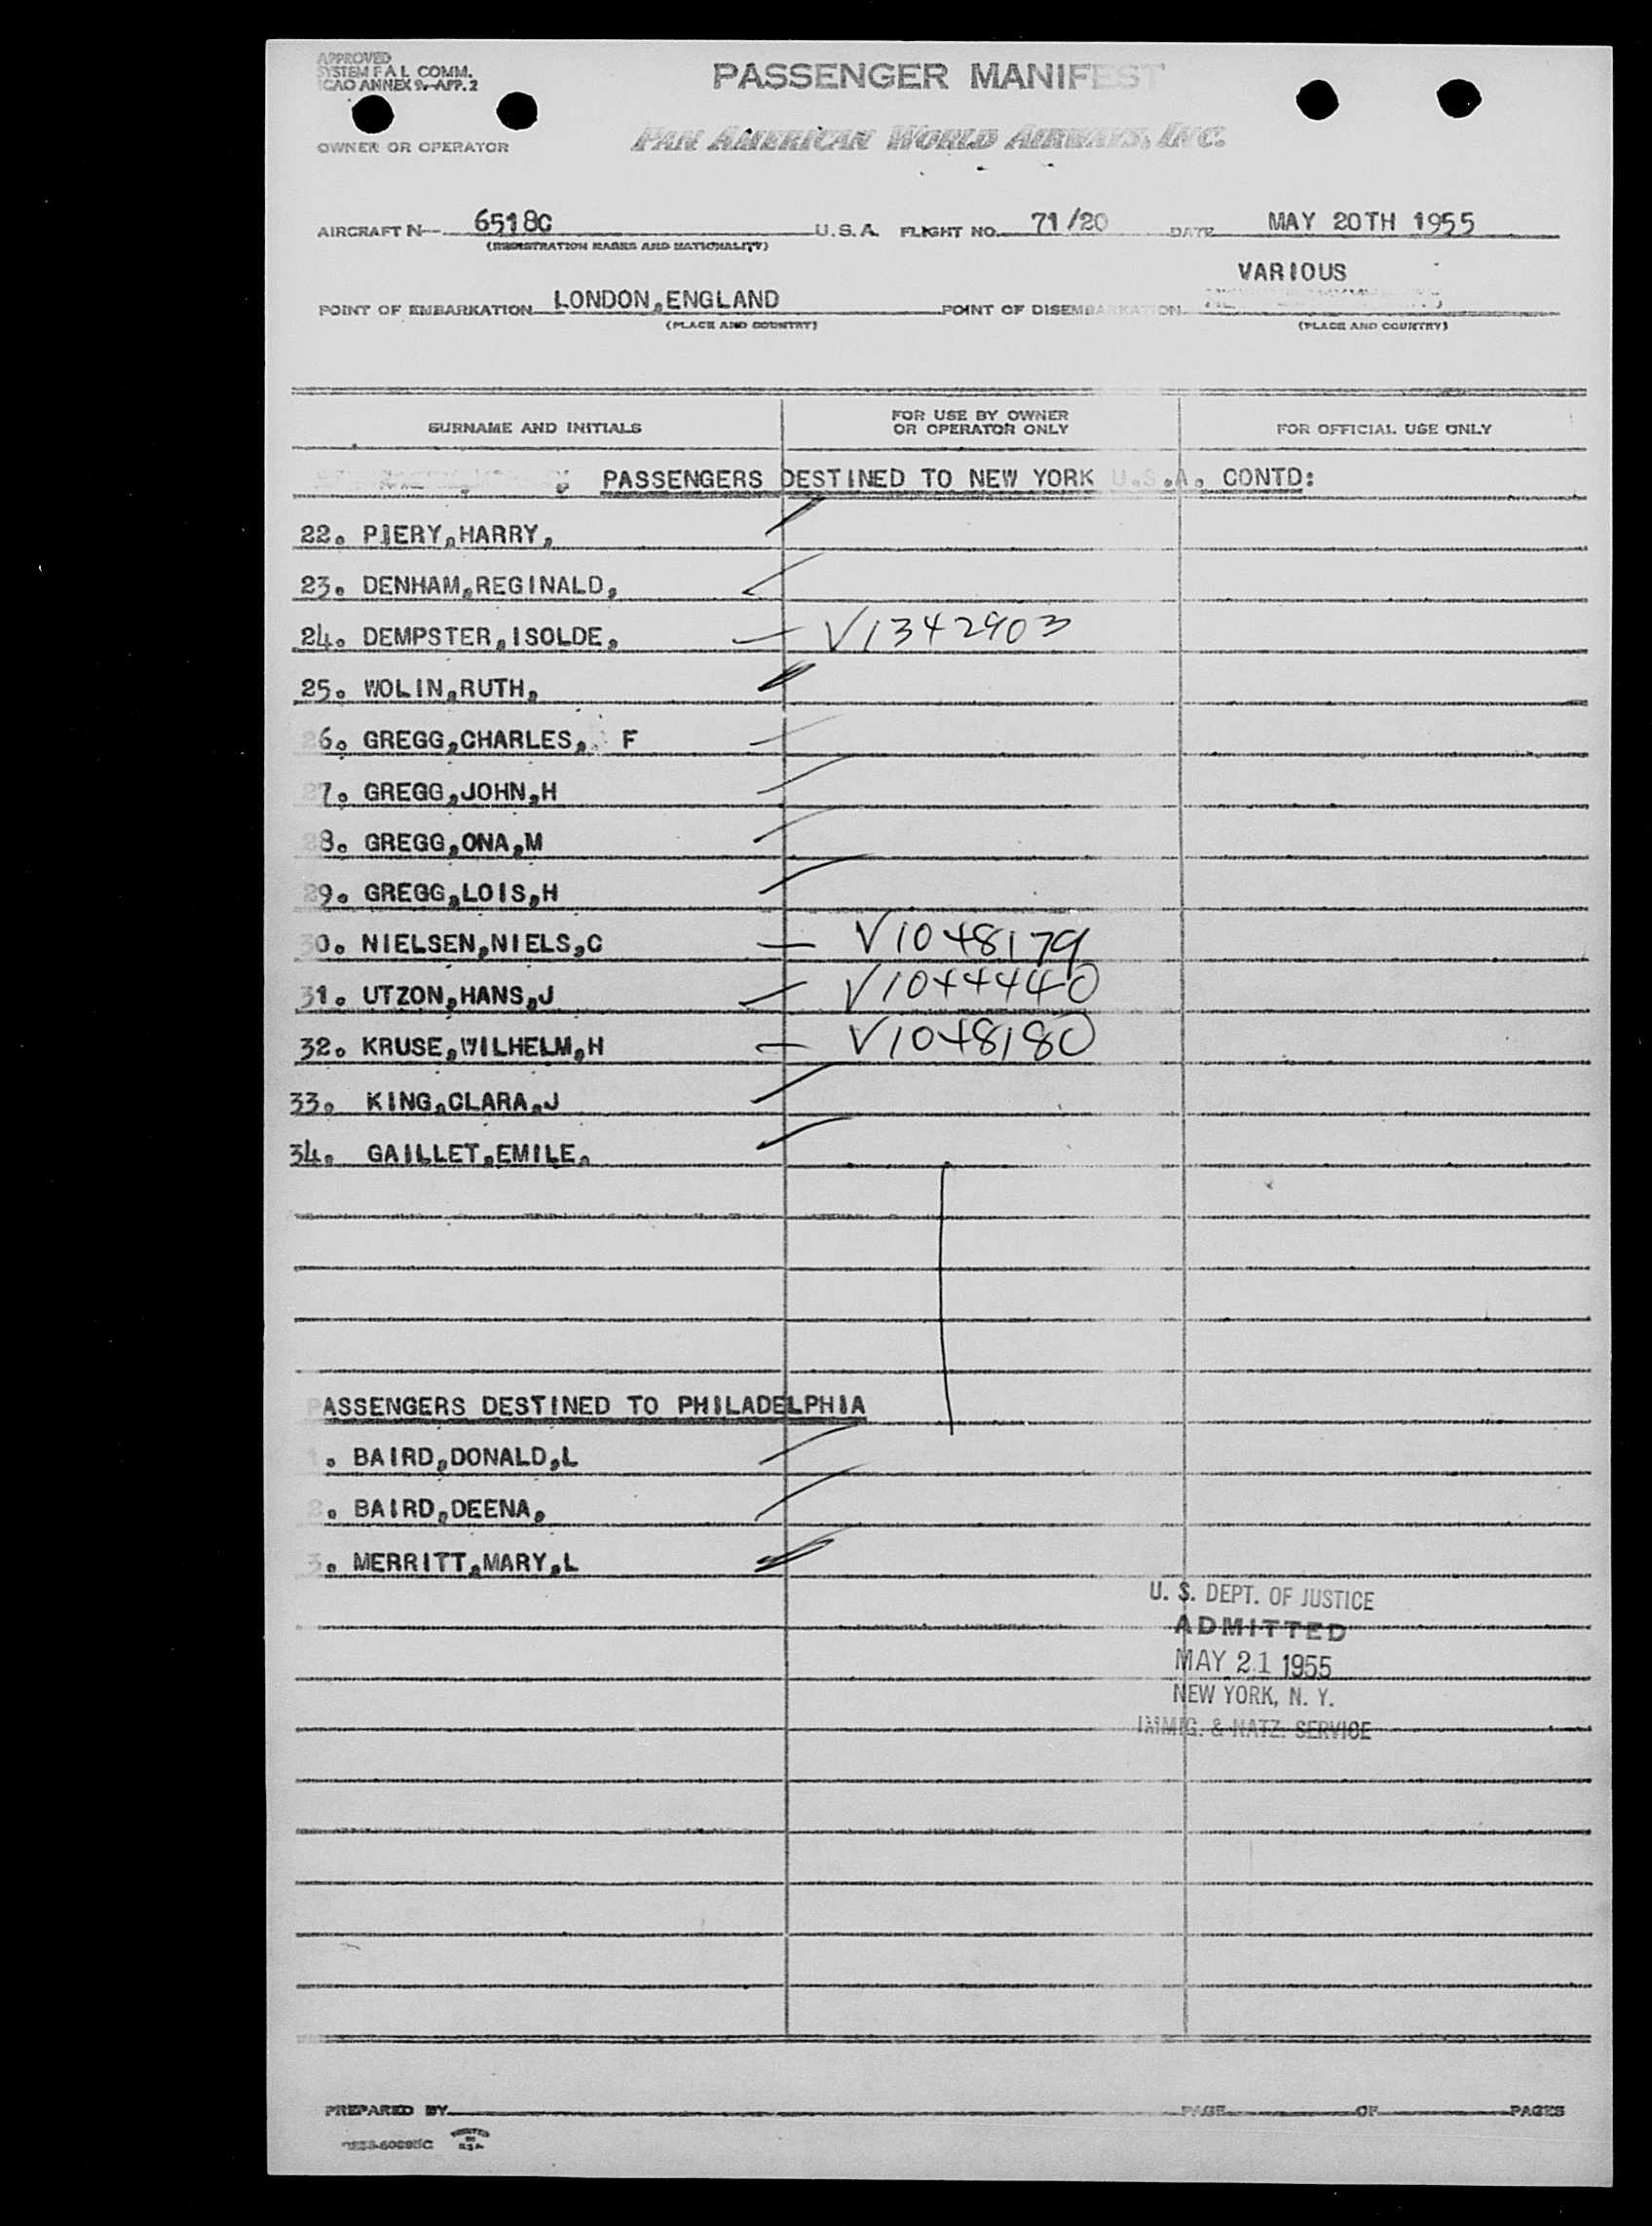 APPROVED
SYSTEM F A L COMM.
ICAO ANNEX 9-APP. 2
PASSENGER MANIFEST
OWNER OR OPERATOR
PAN AMERICAN WORLD AIRWAYS, INC.
AIRCRAFT N 6518C U.S.A. FLIGHT NO. 71/20 DATE MAY 20TH 1955
(REGISTRATION MARKS AND NATIONALITY)
VARIOUS
POINT OF EMBARKATION LONDON,ENGLAND POINT OF DISEMBARKATION
(PLACE AND COUNTRY) (PLACE AND COUNTRY)
SURNAME AND INITIALS
FOR USE BY OWNER
OR OPERATOR ONLY
FOR OFFICIAL USE ONLY
PASSENGERS DESTINED TO NEW YORK U.S.A. CONTD:
22. PIERY,HARRY,
23. DENHAM,REGINALD,
24. DEMPSTER,ISOLDE, V1342903
25. WOLIN,RUTH,
26. GREGG,CHARLES, F
27. GREGG,JOHN,H
28. GREGG,ONA,M
29. GREGG,LOIS,H
30. NIELSEN,NIELS,C V1048179
31. UTZON,HANS,J V1044440
32. KRUSE,WILHELM,H V1048180
33. KING,CLARA,J
34. GAILLET,EMILE,
PASSENGERS DESTINED TO PHILADELPHIA
1. BAIRD,DONALD,L
2. BAIRD,DEENA,
3. MERRITT,MARY,L
U. S. DEPT. OF JUSTICE
ADMITTED
MAY 21 1955
NEW YORK, N. Y.
IMMIG. & NATZ. SERVICE
PREPARED BY PAGE OF PAGES
PRINTED
IN
U.S.A.